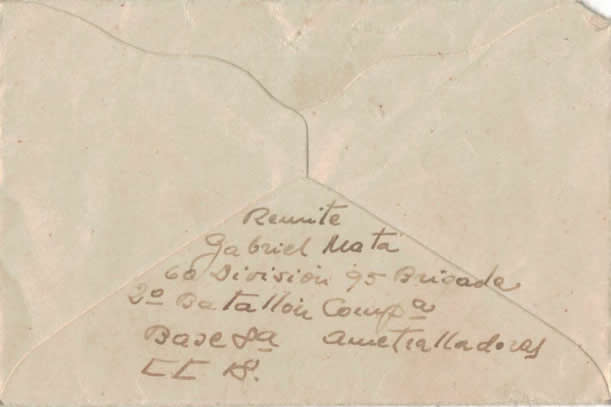 Remite
Gabriel Mata
60 Division 95 Brigada
2º Batallon Compª
Base 8ª Ametralladoras
CC 18.